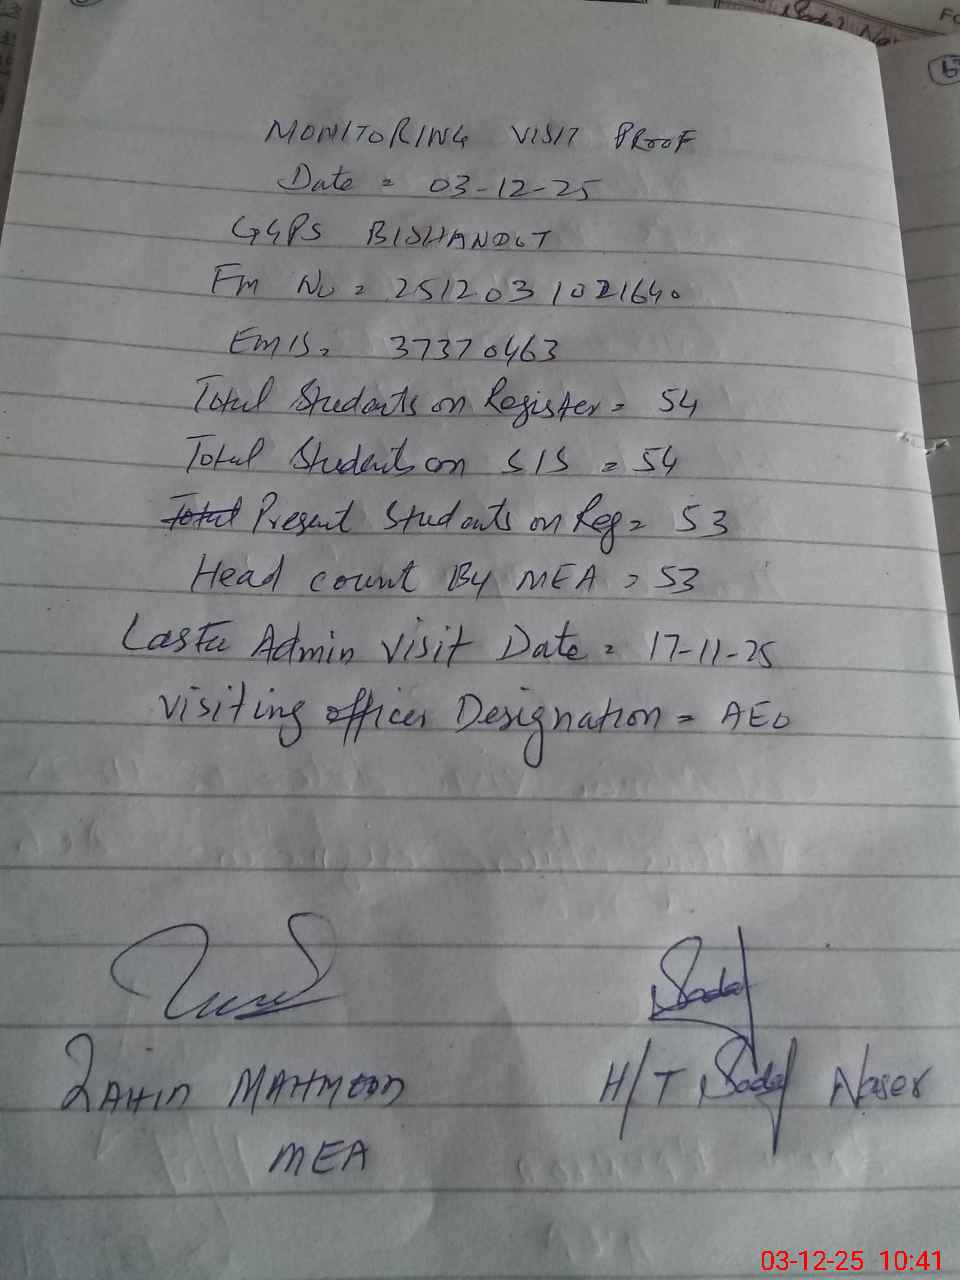 MONITORING VISIT PROOF
Date = 03-12-25
GGPS BISHANDOT
Fm No = 2512031021640
EMIS = 37370463
Total Students on Register = 54
Total Students on SIS = 54
Total Present Students on Reg = 53
Head count By MEA = 53
Admin Visit Date = 17-11-25
Visiting officer Designation = AEO
MAHMOOD
H/T Sadaf Naser
MEA
03-12-25 10:41